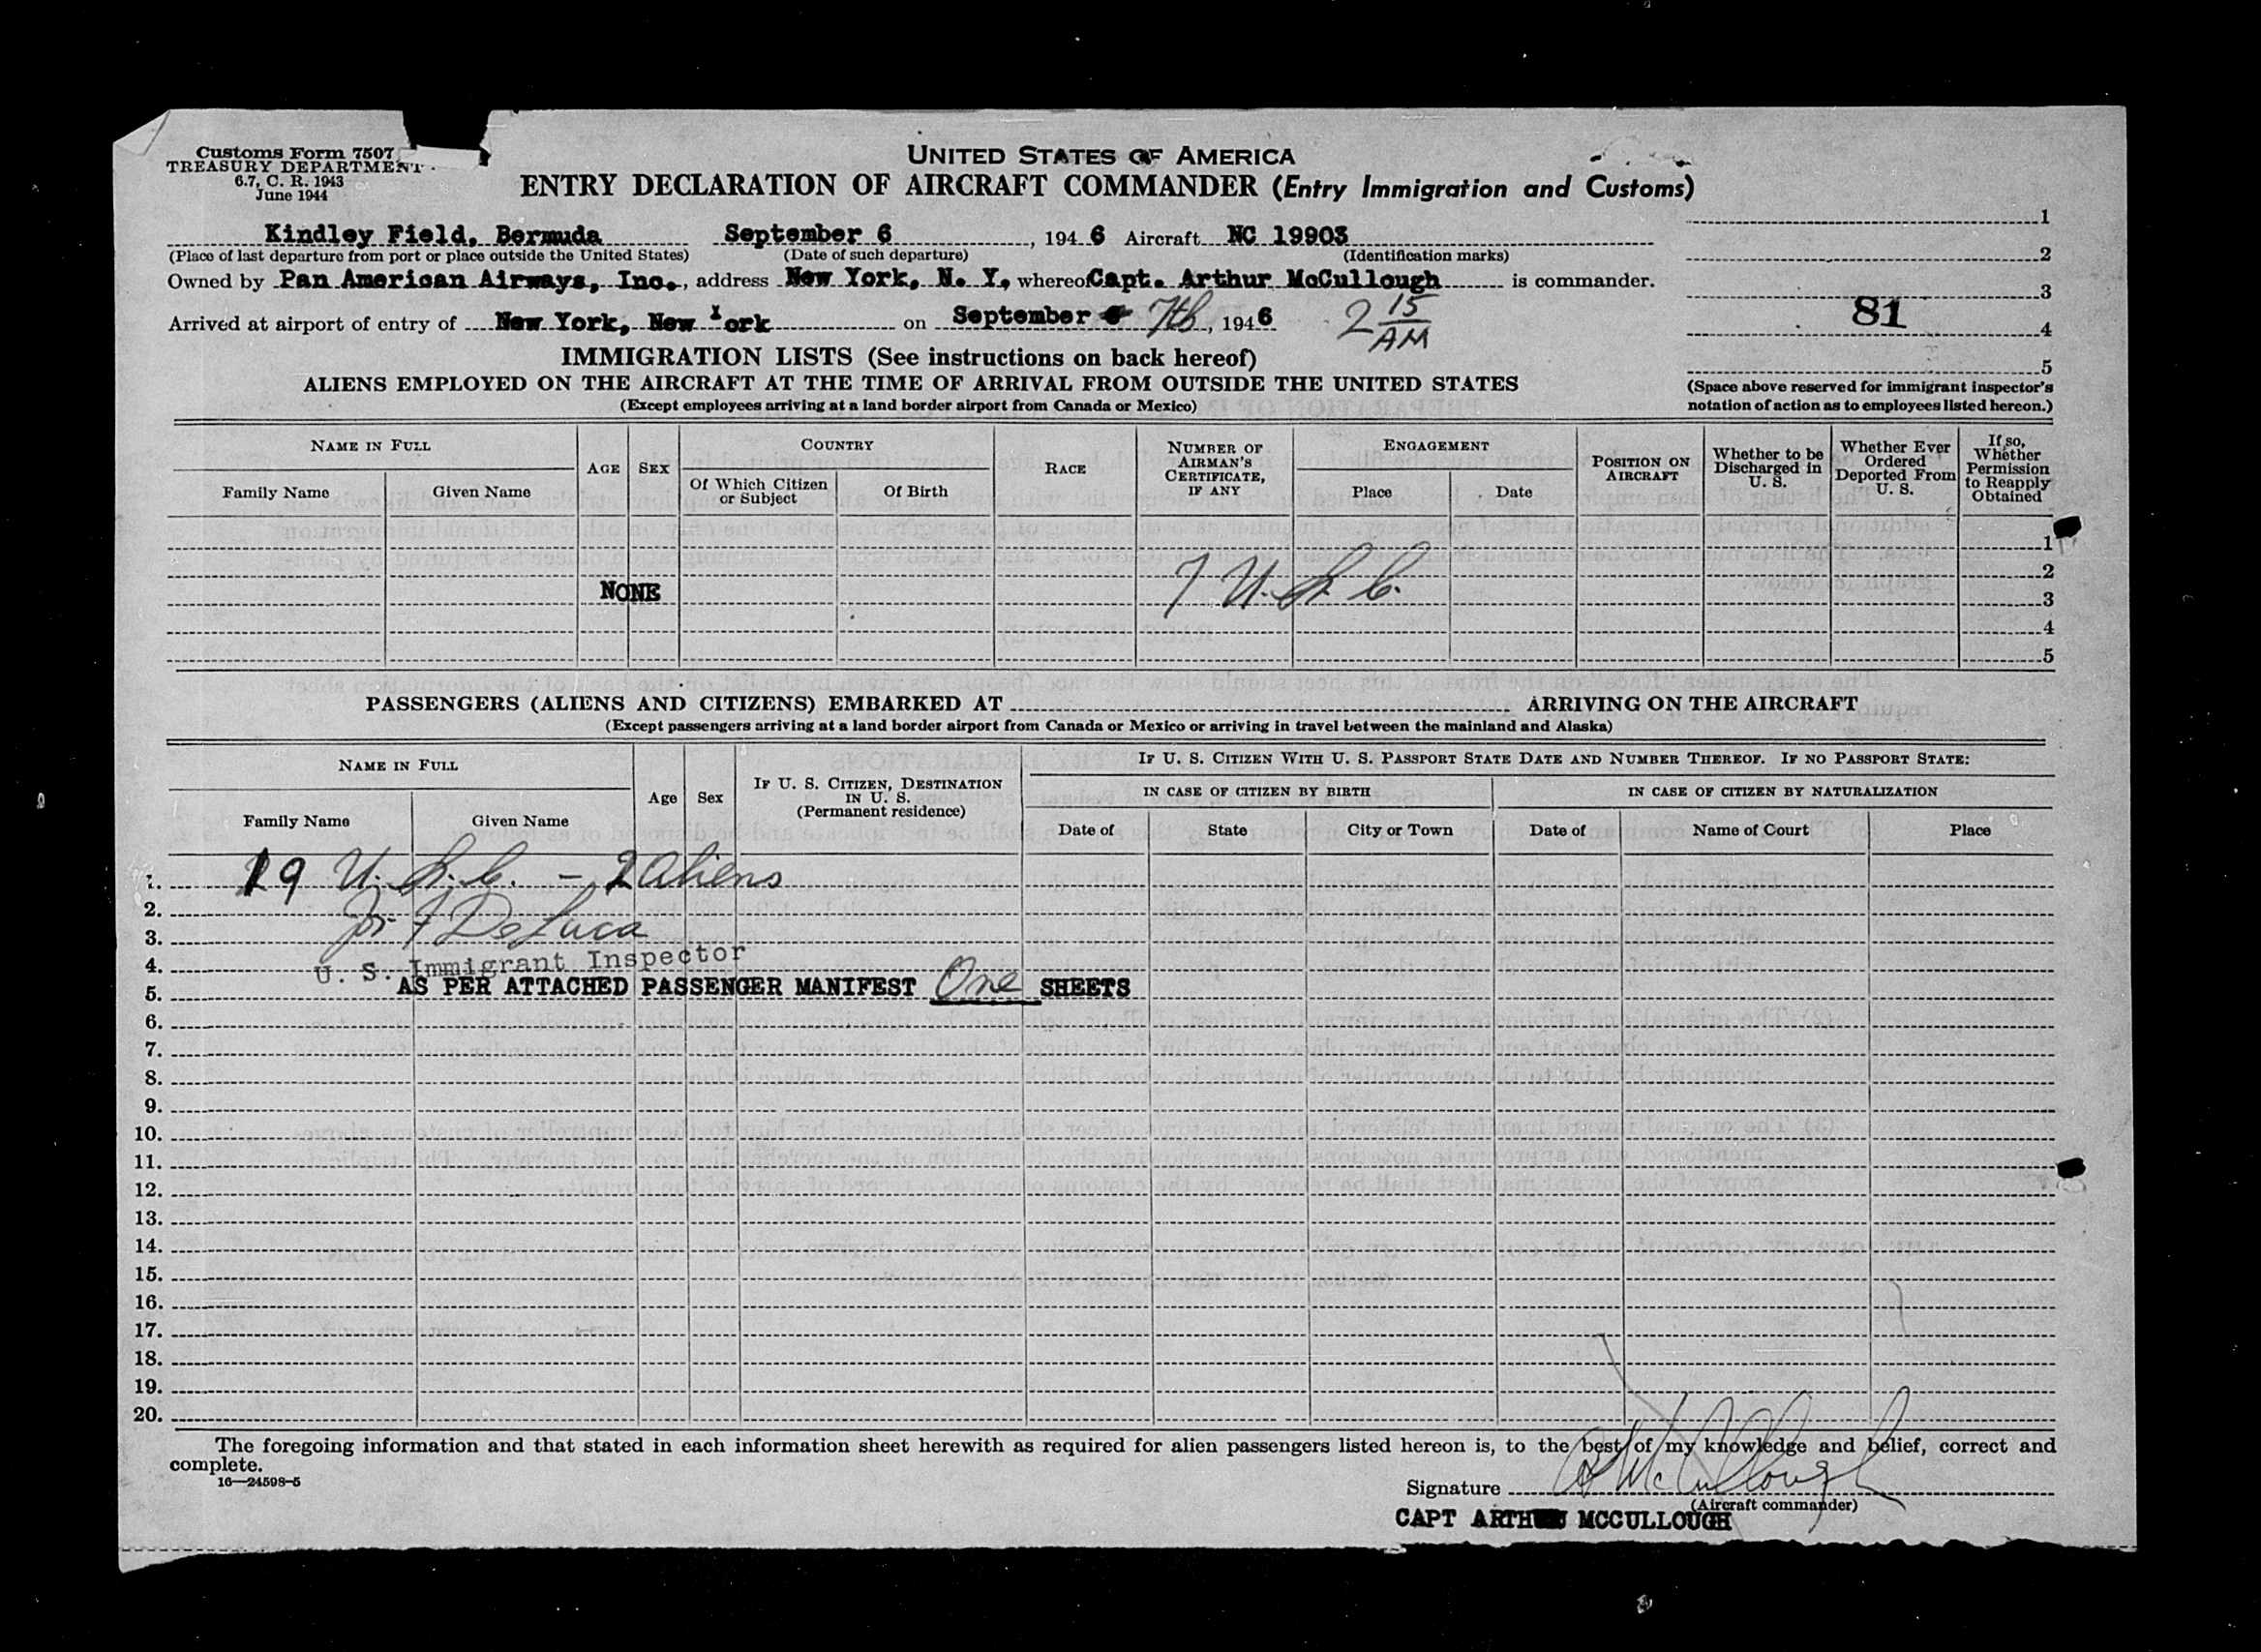 Customs Form 7507
TREASURY DEPARTMENT
6.7, C. R. 1943
June 1944
UNITED STATES OF AMERICA
ENTRY DECLARATION OF AIRCRAFT COMMANDER (Entry Immigration and Customs)
Kindley Field, Bermuda September 6, 1946 Aircraft NC 19903
(Place of last departure from port or place outside the United States) (Date of such departure) (Identification marks)
Owned by Pan American Airways, Inc., address New York, N. Y, whereof Capt. Arthur McCullough is commander.
Arrived at airport of entry of New York, New York on September 7th, 1946 2 15 AM
1
2
3
81
4
5
(Space above reserved for immigrant inspector's
notation of action as to employees listed hereon.)
IMMIGRATION LISTS (See instructions on back hereof)
ALIENS EMPLOYED ON THE AIRCRAFT AT THE TIME OF ARRIVAL FROM OUTSIDE THE UNITED STATES
(Except employees arriving at a land border airport from Canada or Mexico)
NAME IN FULL
Family Name
Given Name
AGE
SEX
COUNTRY
Of Which Citizen
or Subject
Of Birth
RACE
NUMBER OF
AIRMAN'S
CERTIFICATE,
IF ANY
ENGAGEMENT
Place
Date
POSITION ON
AIRCRAFT
Whether to be
Discharged in
U. S.
Whether Ever
Ordered
Deported From
U. S.
If so,
Whether
Permission
to Reapply
Obtained
1
2
NONE 7 U.S.C. 3
4
5
PASSENGERS (ALIENS AND CITIZENS) EMBARKED AT ARRIVING ON THE AIRCRAFT
(Except passengers arriving at a land border airport from Canada or Mexico or arriving in travel between the mainland and Alaska)
NAME IN FULL
Family Name
Given Name
Age
Sex
IF U. S. CITIZEN, DESTINATION
IN U. S.
(Permanent residence)
IF U. S. CITIZEN WITH U. S. PASSPORT STATE DATE AND NUMBER THEREOF. IF NO PASSPORT STATE:
IN CASE OF CITIZEN BY BIRTH
Date of
State
City or Town
IN CASE OF CITIZEN BY NATURALIZATION
Date of
Name of Court
Place
1. 19 U.S.C. - 2 Aliens
2.
3. DeLuca
4. U. S. Immigrant Inspector
5. AS PER ATTACHED PASSENGER MANIFEST One SHEETS
6.
7.
8.
9.
10.
11.
12.
13.
14.
15.
16.
17.
18.
19.
20.
The foregoing information and that stated in each information sheet herewith as required for alien passengers listed hereon is, to the best of my knowledge and belief, correct and
complete.
16—24598-5
Signature A McCullough
(Aircraft commander)
CAPT ARTHU MCCULLOUGH